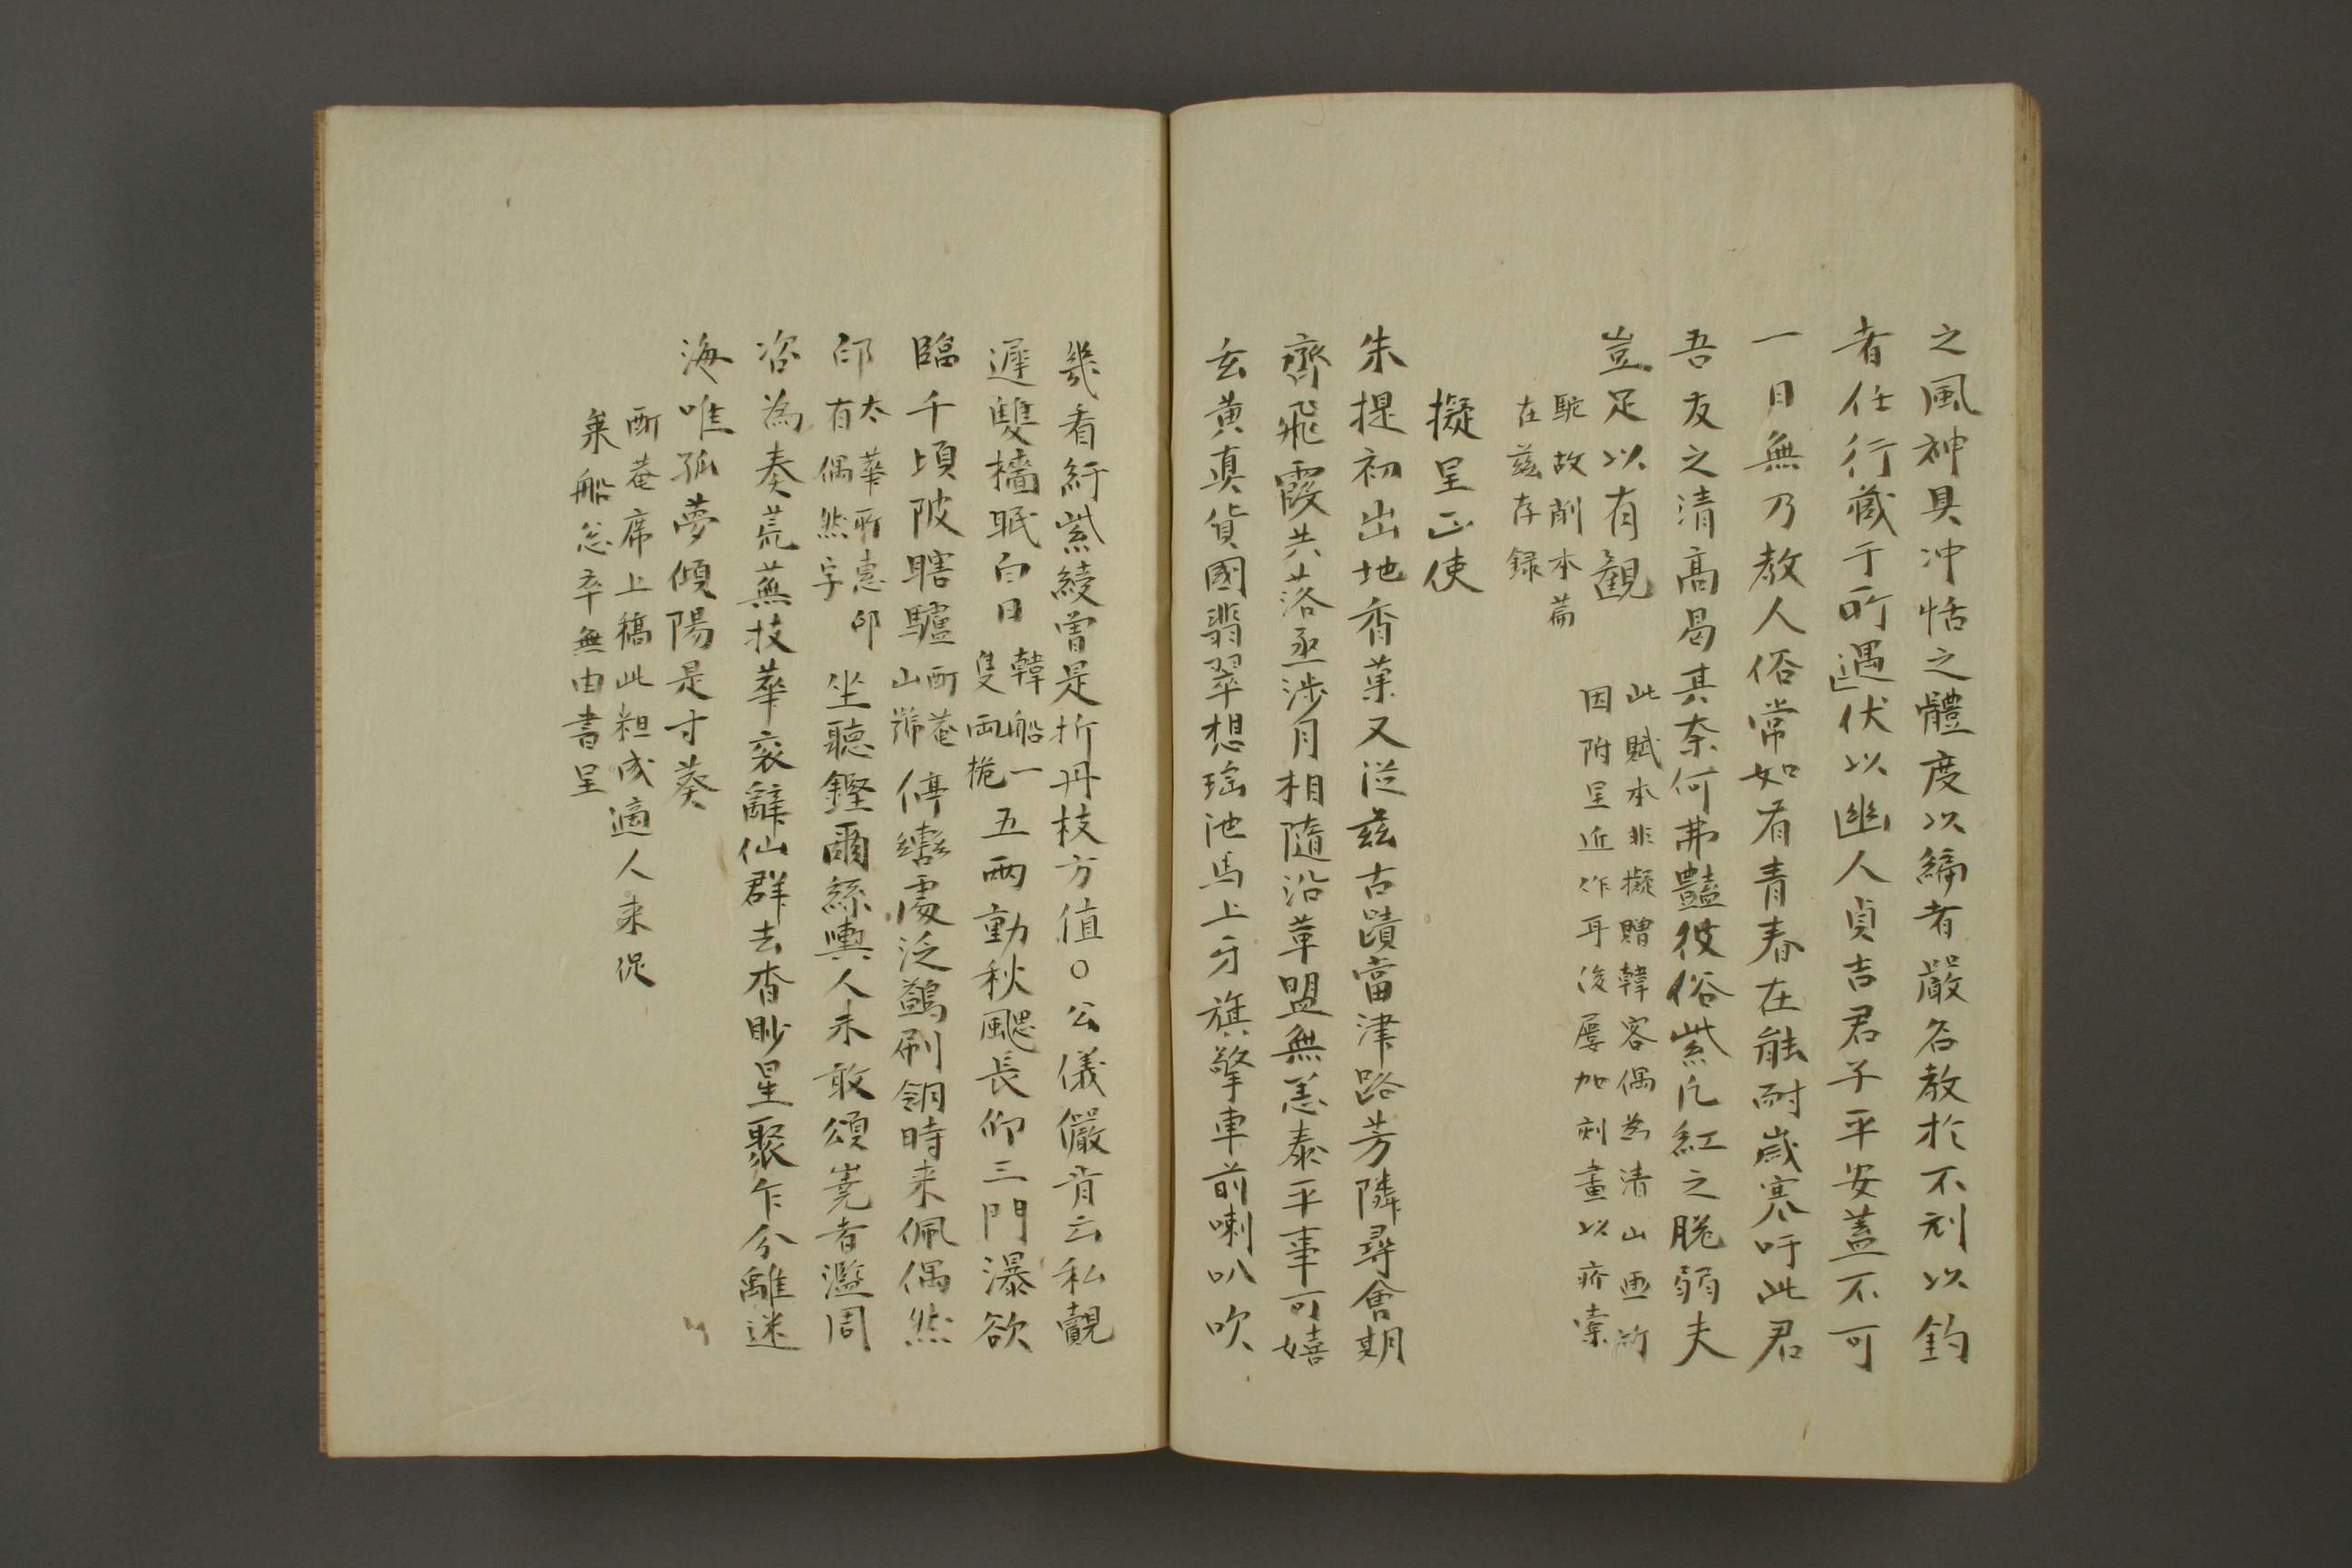 之風神具冲恬之體度以縞者嚴名教於不刓以釣
者任行藏于所遇伏以幽人貞吉君子平安蓋不可
一日無乃教人俗常如有青春在能耐歲寒吁此君
吾友之清高曷其奈何弗豔彼俗紫凡紅之脆弱夫
豈足以有觀
此賦本非擬贈韓客偶為清山画所
因附呈近作耳後屡加刻畫以疥橐
駝故削本篇
在兹存録
擬呈正使
朱提初出地香菓又從兹古蹟當津路芳隣尋會期
齊飛霞共落丞涉月相隨沿革盟無恙泰平事可嬉
玄黄真貨國翡翠想瑶池馬上牙旗擎車前喇叭吹
幾看紆紫綬曽是折丹枝方值○公儀儼肯云私覿
遅雙檣眠白日
韓船一
隻両桅
五两動秋颸長仰三門瀑欲
臨千頃陂瞎驢
酊菴
山號
停轡處泛鷁刷翎時来佩偶然
印
太華所恵印
有偶然字
坐聽鏗爾絲輿人未敢頌蕘者濫周
咨為奏荒蕪技華衮辭仙群去杳眇星聚乍分離迷
海唯孤夢傾陽是寸葵
酊菴席上稿此粗成適人来促
乗船怱卒無由書呈